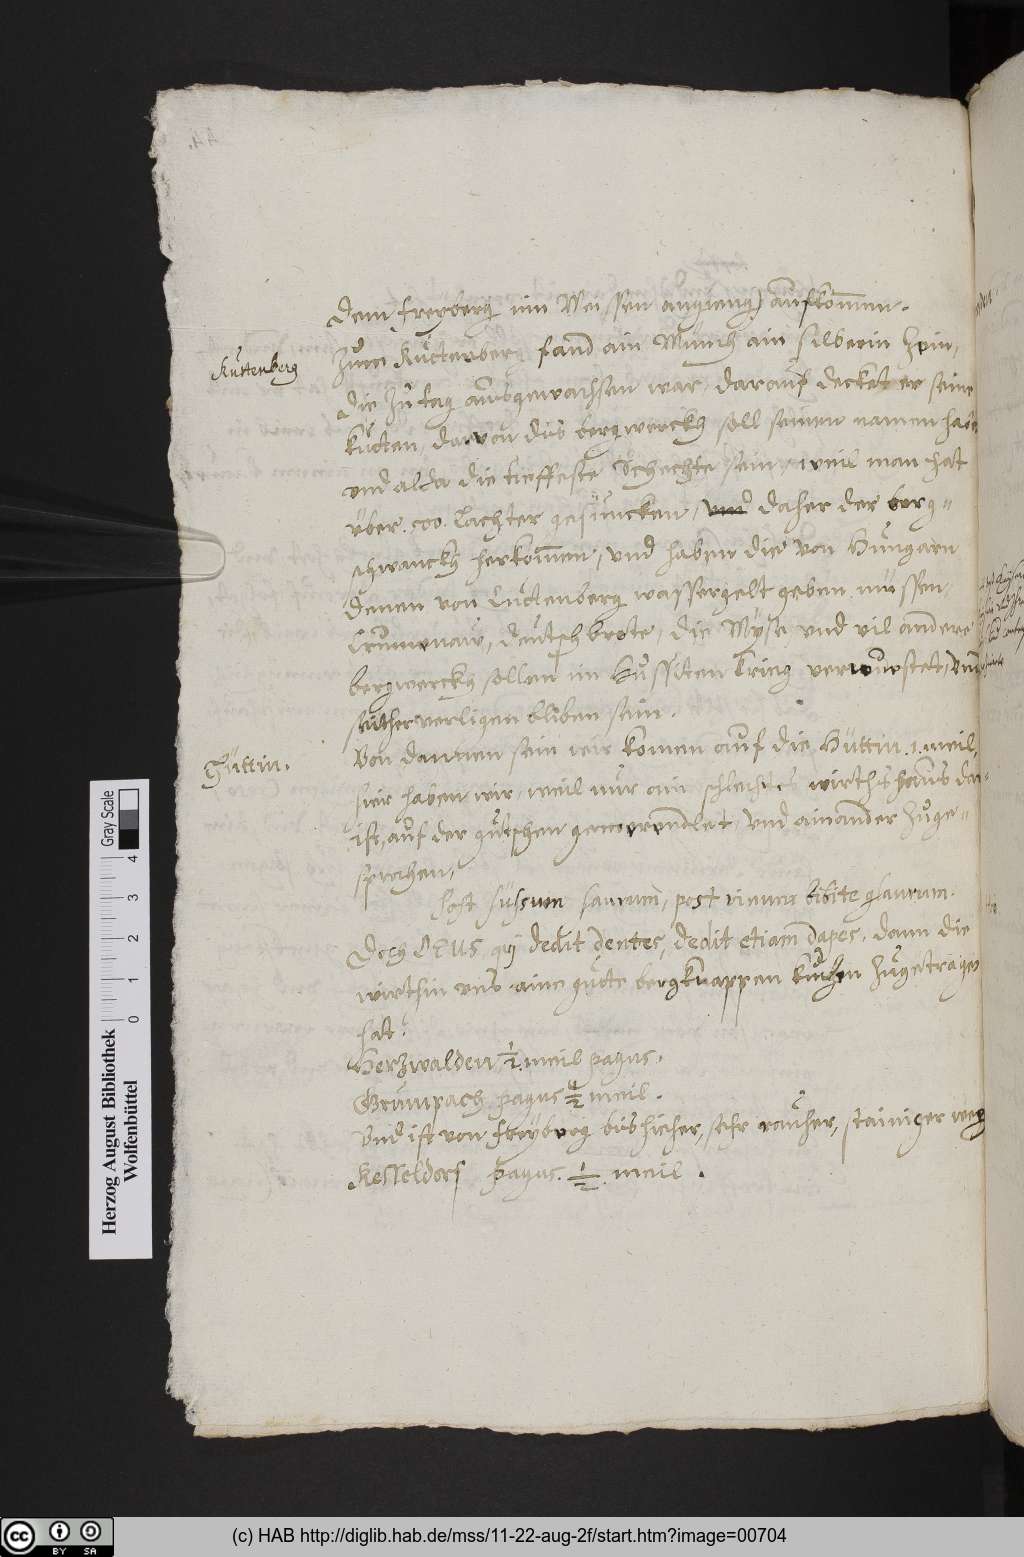 dem freyberg inn Meissen angieng) aufkommen.
Kuttenberg
Zum Kuttenberg fand ain Münch ain silberin Zein,
die zu tag ausgewachssen war, darauf decket er seine
kutten, darvon dis bergwerckh soll seinen namen habe
und alda die tieffeste Schechte sein, weil man hat
über 500. Lachter gesuncken, und daher der berg=
schwanckh herkommen, und haben die von Hungarn
denen von Kuttenberg wassergelt geben müssen,
Crummenaw, deutsch brote, die Myse und vil andere
bergwerckh sollen im Hussiten Krieg verwuestet, und
seither verligen bliben sein.
Hüttin.
Von dannen sein wir komen auf die Hüttin .1. meil,
hier haben wir, weil nur ain schlechtes wirtshaus da=
ist, auf der gutschen gemerendlet, und ainander zuge=
sprochen,
Host süssum saurum, post vinum bibite
Doch DEUS, qui dedit dentes, dedit etiam dapes, dann die
wirthin uns aine guote bergknappen kuchen zugetragen
hat.
Herzwalden 1/2 meil pagus.
Grumpach pagus 1/2 meil.
Und ist von freyberg bis hieher, sehr rauher, stainiger weg
Kesseldorf pagus. 1/2 meil.
Herzog August Bibliothek
Wolfenbüttel
0 1 2 3 4
Gray Scale
cc BY SA
(c) HAB http://diglib.hab.de/mss/11-22-aug-2f/start.htm?image=00704